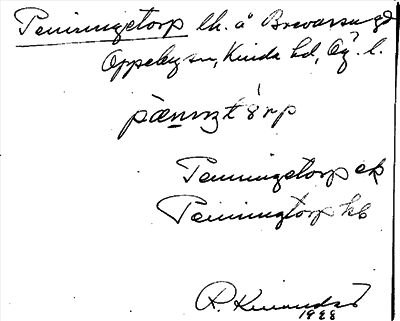 Penningetorp lh. å Brevassa gd
Oppeby sn, Kinda hd, Ög. l.
pænnztǒrp
Penningetorp ek
Penningtorp kb
R. 
1928